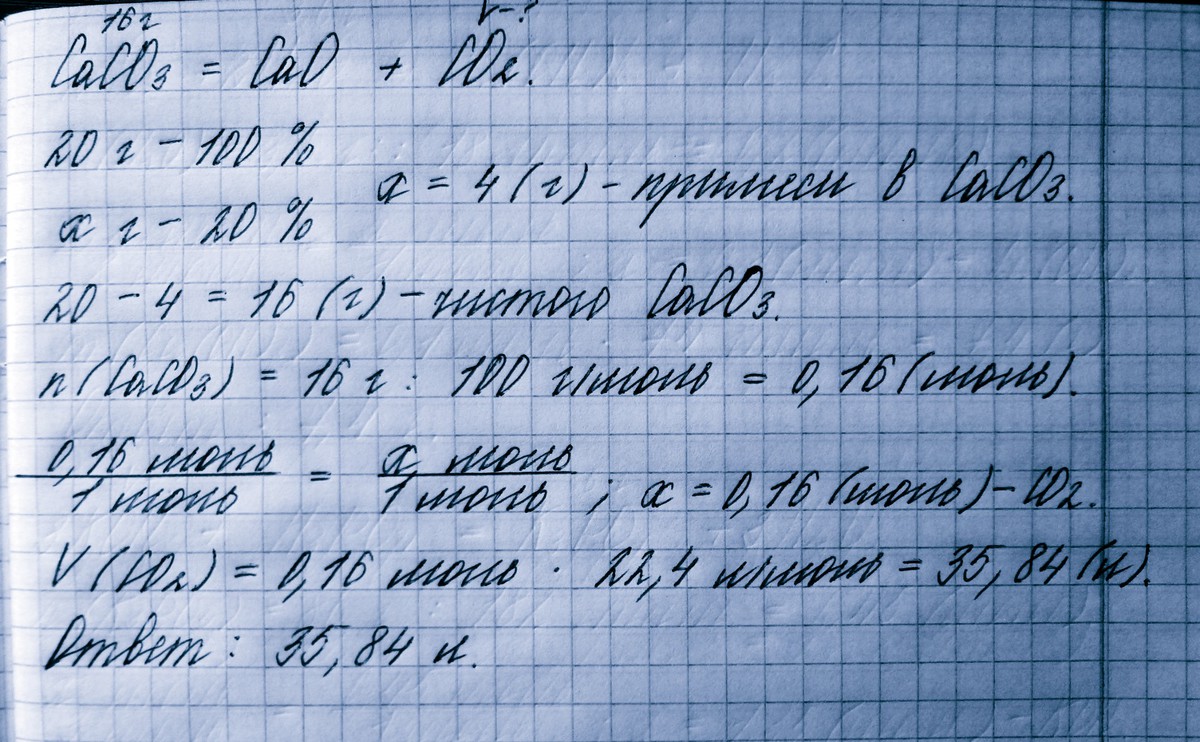 16 г V-?
CaCO₃ = CaO + CO₂.
20 г - 100 %
x = 4 (г) - примеси в CaCO₃.
x г - 20 %
20 - 4 = 16 (г) - чистого CaCO₃.
n (CaCO₃) = 16 г : 100 г/моль = 0,16 (моль).
0,16 моль / 1 моль = x моль / 1 моль ; x = 0,16 (моль) - CO₂.
V (CO₂) = 0,16 моль · 22,4 л/моль = 35,84 (л).
Ответ : 35,84 л.